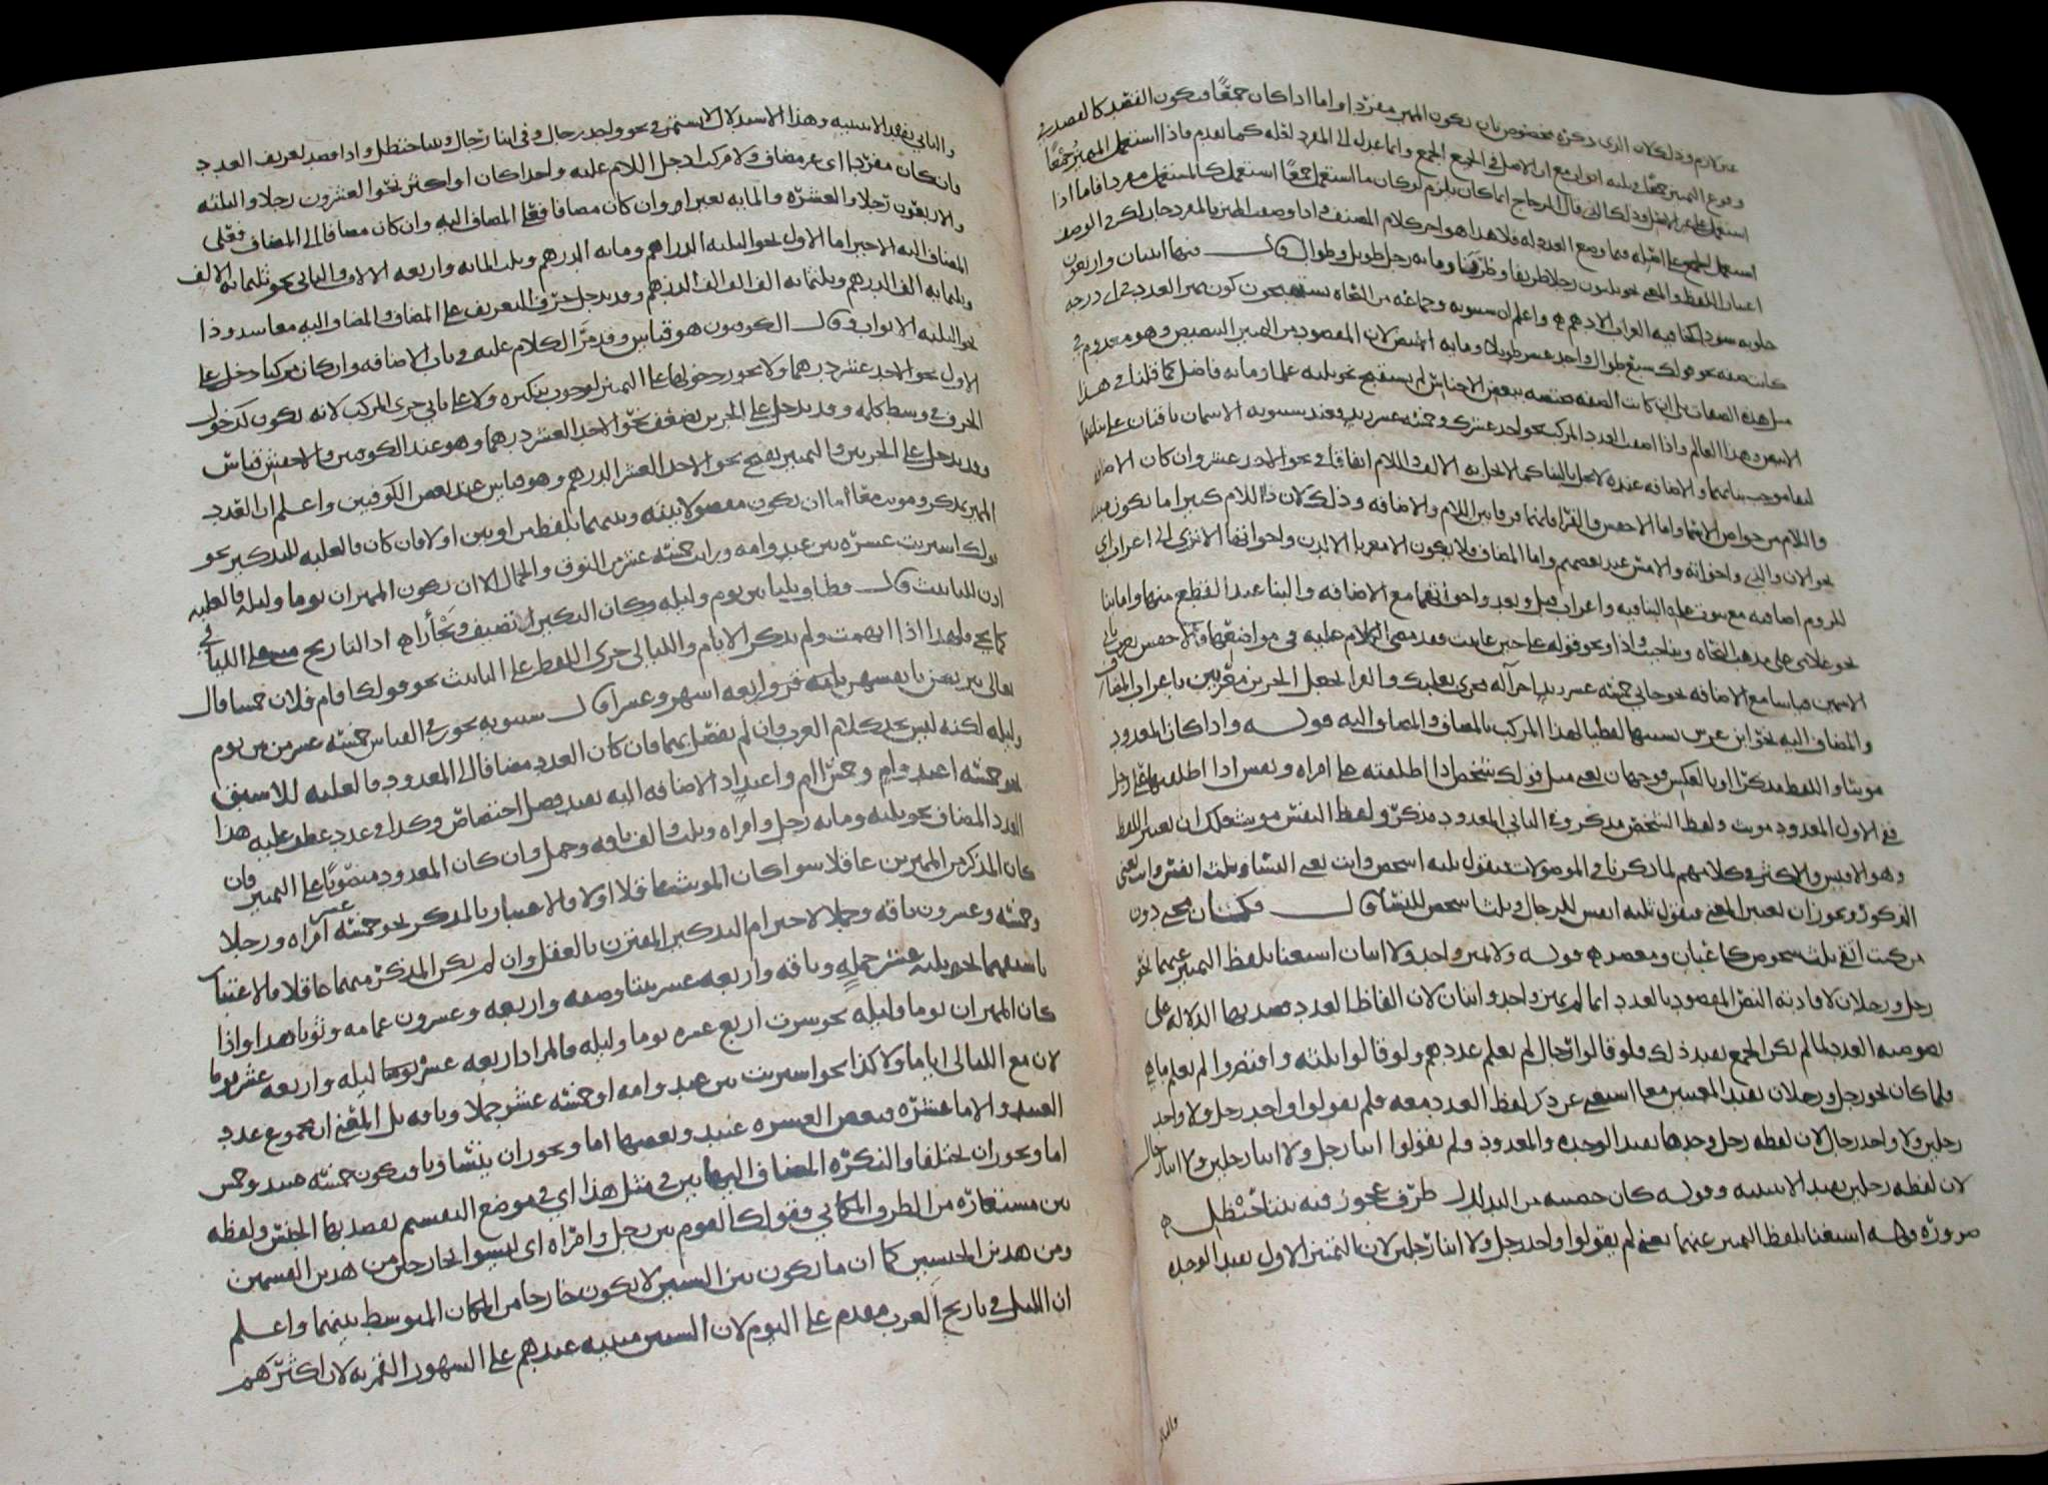 غير لازم وذلك لان الذي ذكره مخصوص بان يكون المميز مفردا واما اذا كان جمعًا فيكون القصد كالقصد في
وقوع التمييز جمعًا في ثلثه اثواب مع ان الاصل في الجمع الجمع وانما عدل الى المفرد لعله كما تقدم فاذا استعمل المميز جمعًا
استعمل على الاصل وذلك الذي قال الزجاج انما كان يلزم لو كان ما استعمل جمعًا استعمل كما استعمل مفردا فاما اذا
استعمل الجمع على اصله فيما وضع العدد له فلا هذا هو اخر كلام المصنف واذا وصف المميز بالمفرد جاز لك في الوصف
اعتبار اللفظ والمعنى نحو ثلثون رجلا ظريفا وظرفا ومائه رجل طويل وطوال قال فيها اثنتان واربعون
حلوبه سودا كخافيه الغراب الاسحم واعلم ان سيبويه وجماعه من النحاه يستقبحون كون مميز العدد في اي درجه
كانت صفه نحو قولك سبع طوال واحد عشر طويلا ومايه ابيض لان المقصود من التمييز التنصيص وهو معدوم في
مثل هذه الصفات بل ان كانت الصفه مختصه ببعض الاجناس لم يستقبح نحو ثلثه علما ومايه فاضل كما قلنا في هذا
الابيض وهذا العالم واذا اضفت العدد المركب نحو احد عشرك وخمسه عشر زيد فعند سيبويه الاسمان باقيان على بنائهما
لبقا موجب بنائهما والاضافه عنده لا تخل بالبنا كما لا تخل به الالف واللام اتفاقا في نحو الاحد عشر وان كان الاضافه
واللام من خواص الاسما واما الاخفش والفرا فانهما فرقا بين اللام والاضافه وذلك لان ذا اللام كثيرا ما يكون مبنيا
نحو الان والذي واخواته والامس عند بعضهم واما المضاف فلا يكون الا معربا الا لدن واخواتها الا ترى الى اعراب اي
للزوم اضافته مع ثبوت عله البنا فيه واعراب قبل وبعد واخواتهما مع الاضافه والبنا عند القطع عنها واما بنا
نحو غلامي على مذهب النحاه وبنا حيث واذا ونحو قوله على حين عاتبت فقد مضى الكلام عليه في مواضعها والاخفش يعرب ثاني
الاسمين قياسا مع الاضافه نحو جاني خمسه عشر زيد اجراه مجرى بعلبك والفرا يجعل الجزين معربين باعراب المضاف
والمضاف اليه نحو ابن عرس تشبيها لفظيا لهذا المركب بالمضاف والمضاف اليه قوله واذا كان المعدود
مؤنثا واللفظ مذكرا او بالعكس فوجهان يعني مثل قولك شخص اذا اطلقته على امراه ونفس اذا اطلقتها على رجل
ففي الاول المعدود مونث ولفظ الشخص مذكر وفي الثاني المعدود مذكر ولفظ النفس مونث فلك ان تعتبر اللفظ
وهو الاقيس والاكثر في كلامهم لما ذكرنا في الموصولات فتقول ثلثه اشخص وانت تعني النسا وثلث انفس وانت تعني
الذكور ويجوز ان تعتبر المعنى فتقول ثلثه انفس للرجال وثلث اشخص للنسا قال فكان مجني دون
من كنت اتقي ثلث شخوص كاعبان ومعصر قوله ولا يميز واحد ولا اثنان استغنا بلفظ التمييز عنهما نحو
رجل ورجلان لافادته النص المقصود بالعدد انما لم يميز واحد واثنان لان الفاظ العدد قصد بها الدلاله على
نصوصيه العدد لما لم يكن الجمع يفيد ذلك فلو قالوا رجال لم يعلم عددهم ولو قالوا ثلثه واقتصروا لم يعلم ما هي
فلما كان نحو رجل ورجلان يفيد المعنيين معا استغنى عن ذكر لفظ العدد معه فلم يقولوا واحد رجل ولا واحد
رجلين ولا واحد رجال لان لفظه رجل وحدها تفيد الوحده والمعدود ولم يقولوا اثنا رجل ولا اثنا رجلين ولا اثنا رجال
لان لفظه رجلين تفيد الاثنينيه وقوله كان خصييه من التدلدل ظرف عجوز فيه ثنتا حنظل
ضروره قوله استغنا بلفظ التمييز عنهما يعني لم يقولوا واحد رجل ولا اثنا رجلين لان التمييز الاول يفيد الوحده
والثاني
والثاني يفيد الاثنينيه وهذا الاستدلال لا يستمر في نحو واحد رجال وفي اثنا رجال وثنتا حنظل واذا قصد تعريف العدد
فان كان مفردا اي غير مضاف ولا مركب ادخل اللام عليه واحدا كان او اكثر نحو العشرون رجلا والثلثه
والاربعون رجلا والعشره والمايه بعير وان كان مضافا فعلى المضاف اليه وان كان مضافا الى المضاف فعلى
المضاف اليه الاخير اما الاول نحو ثلثه الدراهم ومايه الدرهم وثلث المايه واربعه الالاف والثاني نحو ثلثمايه الالف
وثلثمايه الف الدرهم وثلثمايه الف الف الف الدرهم وقد يدخل حرف التعريف على المضاف والمضاف اليه معا شذوذا
نحو الثلثه الاثواب وقال الكوفيون هو قياس وقد مر الكلام عليه في باب الاضافه وان كان مركبا دخل على
الاول نحو الاحد عشر درهما ولا يجوز دخولها على التمييز لوجوب تنكيره ولا على ثاني جزي المركب لانه يكون كدخول
الحرف في وسط كلمه وقد يدخل على الجزين بضعف نحو الاحد العشر درهما وهو عند الكوفيين والاخفش قياس
وقد يدخل على الجزين والتمييز بقبح نحو الاحد العشر الدرهم وهو قياس عند بعض الكوفيين واعلم ان العدد
المميز بمذكر ومونث معا اما ان يكون مفصولا بينه وبينهما بلفظ بين او لا فان كان فالغلبه للتذكير نحو
قولك اشتريت عشره بين عبد وامه ورايت خمسه عشر من النوق والجمال الا ان يكون المميزان يوما وليله فالغلبه
اذن للتانيث قال فطافت ثلثا بين يوم وليله وكان النكير ان تضيف وتجأرا اذ التاريخ مبني على الليالي
كما يجي ولهذا اذا ابهمت ولم تذكر الايام والليالي جرى اللفظ على التانيث نحو قولك اقام فلان خمسا قال
تعالى يتربصن بانفسهن اربعه اشهر وعشرا قال سيبويه يجوز في القياس خمسه عشر من بين يوم
وليله لكنه ليس بحد كلام العرب وان لم يفصل بينهما فان كان العدد مضافا الى المعدود فالغلبه للاسبق
نحو خمسه اعبد وام وخمس ام واعبد اذ الاضافه اليه تفيد فضل اختصاص وكذا في عدد عطف عليه هذا
العدد المضاف نحو ثلثه ومايه رجل وامراه وثلث والف ناقه وجمل وان كان المعدود منصوبا على التمييز فان
كان المذكر من المميزين عاقلا سوا كان المونث عاقلا او لا فالاعتبار بالمذكر نحو خمسه عشر امراه ورجلا
وخمسه وعشرون ناقه ورجلا لاحترام التذكير المقترن بالعقل وان لم يكن المذكر منهما عاقلا فالاعتبار
باسبقهما نحو ثلثه عشر جملا وناقه واربعه عشر بيتا وصفه واربعه وعشرون عمامه وثوبا هذا واذا
كان المميزان يوما وليله نحو سرت اربع عشره يوما وليله فالمراد اربعه عشر يوما ليله واربعه عشر يوما
لان مع الليالي اياما ولا كذا نحو اشتريت بين عبد وامه او خمسه عشر جملا وناقه بل المعنى ان مجموع عدد
العبيد والاما عشره فبعض العشره عبيد وبعضها اما ويجوز ان يتساويا فيكون خمسه عبيد وخمس
اما ويجوز ان يختلفا والنكره المضاف اليها بين في مثل هذا اي في موضع التقسيم يقصد بها الجنس ولفظه
بين مستعاره من الظرف المكاني فقولك القوم بين رجل وامراه اي ليسوا بخارجين من هذين القسمين
ومن هذين الجنسين كما ان ما يكون بين الشيين لا يكون خارجا من المكان المتوسط بينهما واعلم
ان الليل في تاريخ العرب مقدم على اليوم لان السنين مبنيه عندهم على الشهور القمريه لان اكثرهم